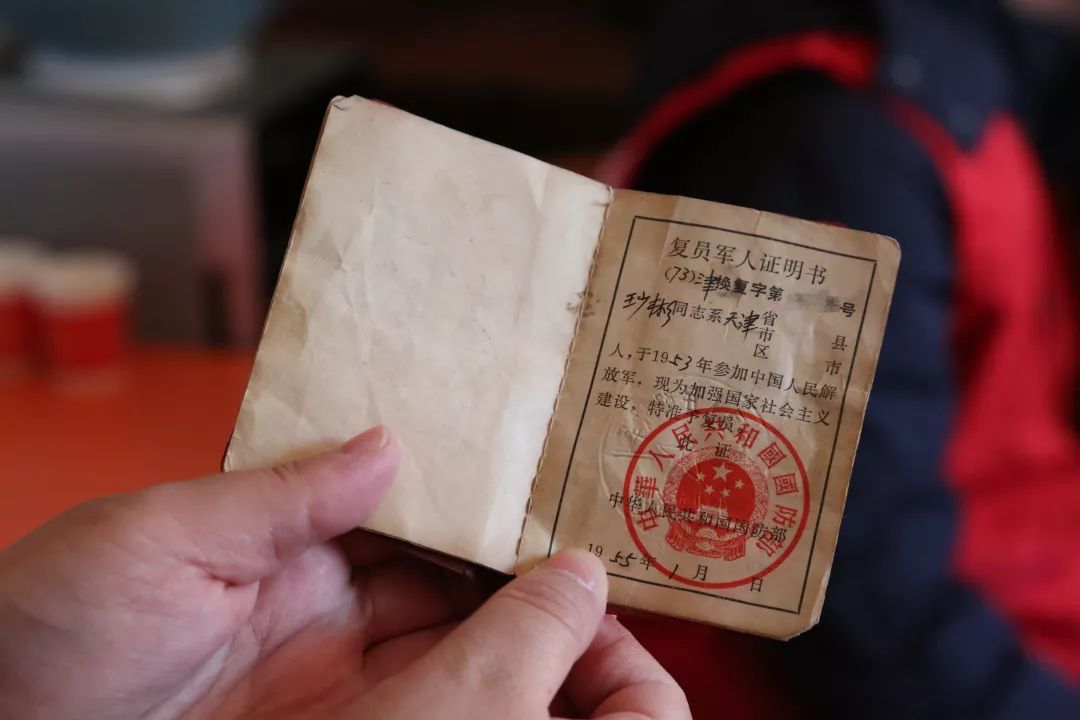 复员军人证明书
(73)津换复字第 号
王少彬同志系天津省市区 县市
人，于1953年参加中国人民解
放军，现为加强国家社会主义
建设，特准予复员，
此证
中华人民共和国国防部
1955年1月 日
中華人民共和國國防部